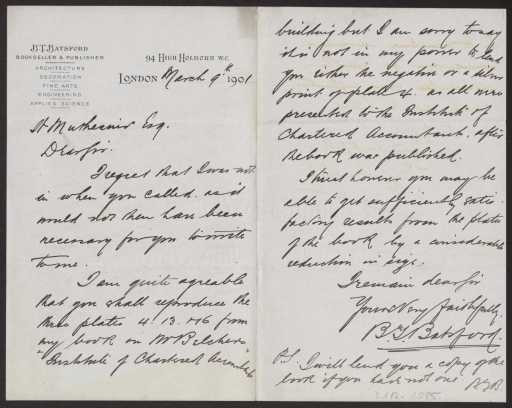 B.T. BATSFORD
BOOKSELLER & PUBLISHER
ARCHITECTURE
DECORATION
FINE ARTS
ENGINEERING
APPLIED SCIENCE
94 HIGH HOLBORN W.C.
LONDON March 9th 1901
H Muthesius Esq.
Dear Sir.
I regret that I was not
in when you called, as it
would not then have been
necessary for you to write
to me.
I am quite agreable
that you shall reproduce the
three plates 4. 13. +16 from
my book on Mr Belchers
"Institute of Chartered Accountants
building but I am sorry to say
it is not in my power to lend
you either the negative or a silver
print of plate 4. as all were
presented to the Institute of
Chartered Accountants, after
the book was published.
I trust however you may be
able to get sufficiently satis-
factory results from the plates
of the book by a considerable
reduction in size.
I remain dear Sir
Yours Very faithfully.
B. T. Batsford.
P.S. I will lend you a copy of the
book if you have not one. BTB